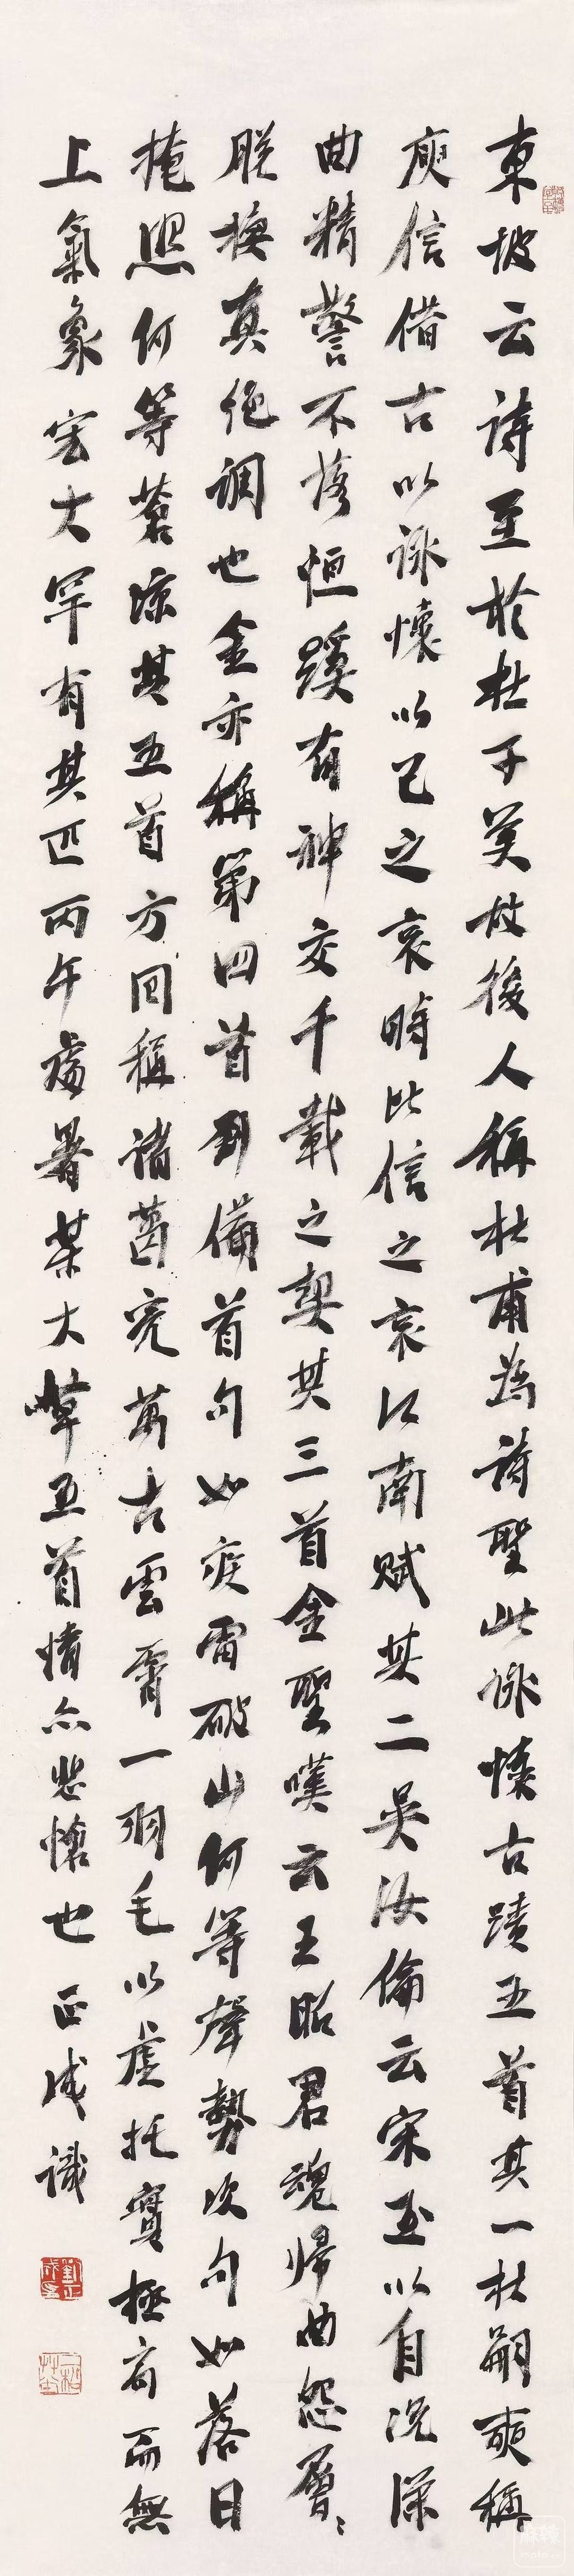 東坡云詩至於杜子美故後人稱杜甫為詩聖此詠懷古蹟五首其一杜嗣奭稱
庾信借古以詠懷以己之哀時比信之哀江南賦其二吳汝倫云宋玉以自況深
曲精警不落恒蹊有神交千載之契其三首金聖嘆云王昭君魂歸曲怨層〻
脫換真絕調也金亦稱第四首劉備首句如疾雷破山何等聲勢次句如落日
掩照何等蒼涼其五首方回稱諸葛亮萬古雲霄一羽毛以虛托實極高而無
上氣象宏大罕有其匹丙午處暑某大草五首情亦悲愴也 正成識